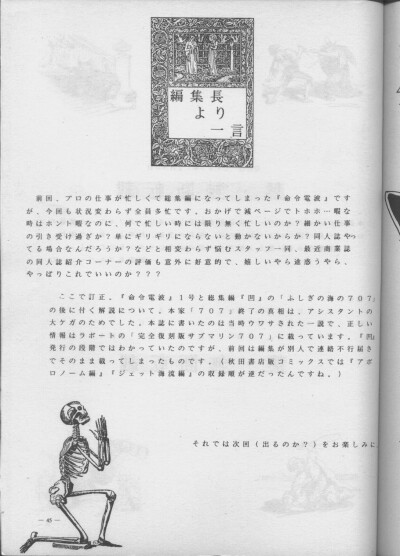 編集長
より
一言
前回、プロの仕事が忙しくて総集編になってしまった『命令電波』です
が、今回も状況変わらず全員多忙です。おかげで減ページでトホホ…暇な
時はホント暇なのに、何で忙しい時には限り無く忙しいのか?細かい仕事
の引き受け過ぎか?単にギリギリにならないと動かないからか?同人誌や
てる場合なんだろうか?などと相変わらず悩むスタッフ一同、最近商業誌
の同人誌紹介コーナーの評価も意外に好意的で、嬉しいやら迷惑うやら、
やっぱりこれでいいのか???
ここで訂正。『命令電波』1号と総集編『凹』の「ふしぎの海の707」
の後に付く解説について。本家「707」は終了の真相は、アシスタントの
大ケガのためでした。本誌に書いたのは当時ウワサされた一説で、正しい
情報はラポートの「完全復刻版サブマリン707」に載っています。『凹』
発行の段階ではわかっていたのですが、前回は編集が別人で連絡不行届き
でそのまま載ってしまったものです。(秋田書店版コミックスでは『アポ
ロノーム編』『ジェット海流編』の収録順が逆だったんですね。)
それでは次回(出るのか?)をお楽しみに
— 45 —